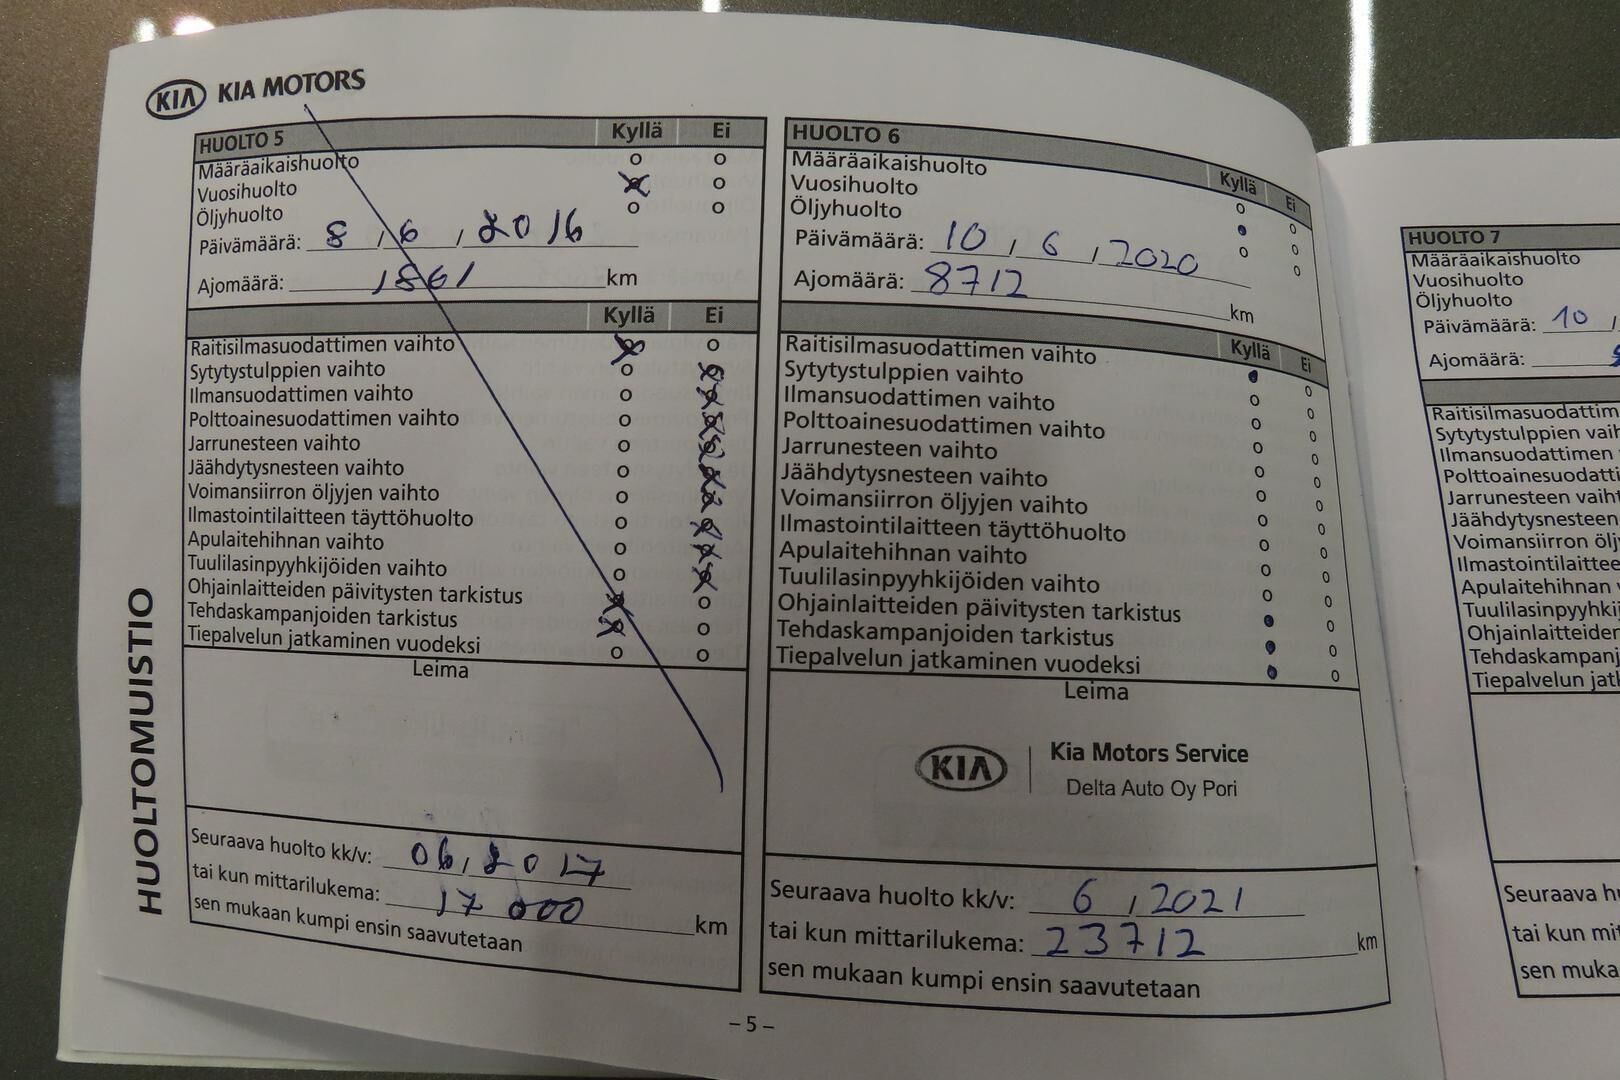 KIA KIA MOTORS
HUOLTOMUISTIO
HUOLTO 5 Kyllä Ei
Määräaikaishuolto
Vuosihuolto
Öljyhuolto
Päivämäärä: 8, 6, 2016
Ajomäärä: 1861 km
Kyllä Ei
Raitisilmasuodattimen vaihto
Sytytystulppien vaihto
Ilmansuodattimen vaihto
Polttoainesuodattimen vaihto
Jarrunesteen vaihto
Jäähdytysnesteen vaihto
Voimansiirron öljyjen vaihto
Ilmastointilaitteen täyttöhuolto
Apulaitehihnan vaihto
Tuulilasinpyyhkijöiden vaihto
Ohjainlaitteiden päivitysten tarkistus
Tehdaskampanjoiden tarkistus
Tiepalvelun jatkaminen vuodeksi
Leima
Seuraava huolto kk/v: 06, 2017
tai kun mittarilukema: 17 000 km
sen mukaan kumpi ensin saavutetaan
HUOLTO 6 Kyllä Ei
Määräaikaishuolto
Vuosihuolto
Öljyhuolto
Päivämäärä: 10, 6, 2020
Ajomäärä: 8712 km
Kyllä Ei
Raitisilmasuodattimen vaihto
Sytytystulppien vaihto
Ilmansuodattimen vaihto
Polttoainesuodattimen vaihto
Jarrunesteen vaihto
Jäähdytysnesteen vaihto
Voimansiirron öljyjen vaihto
Ilmastointilaitteen täyttöhuolto
Apulaitehihnan vaihto
Tuulilasinpyyhkijöiden vaihto
Ohjainlaitteiden päivitysten tarkistus
Tehdaskampanjoiden tarkistus
Tiepalvelun jatkaminen vuodeksi
Leima
KIA Kia Motors Service
Delta Auto Oy Pori
Seuraava huolto kk/v: 6, 2021
tai kun mittarilukema: 23712 km
sen mukaan kumpi ensin saavutetaan
– 5 –
HUOLTO 7
Määräaikaishuolto
Vuosihuolto
Öljyhuolto
Päivämäärä: 10,
Ajomäärä:
Raitisilmasuodattim
Sytytystulppien vaih
Ilmansuodattimen
Polttoainesuodatti
Jarrunesteen vaiht
Jäähdytysnesteen
Voimansiirron öljy
Ilmastointilaitteen
Apulaitehihnan v
Tuulilasinpyyhki
Ohjainlaitteiden
Tehdaskampanj
Tiepalvelun jatk
Seuraava hu
tai kun mit
sen muka